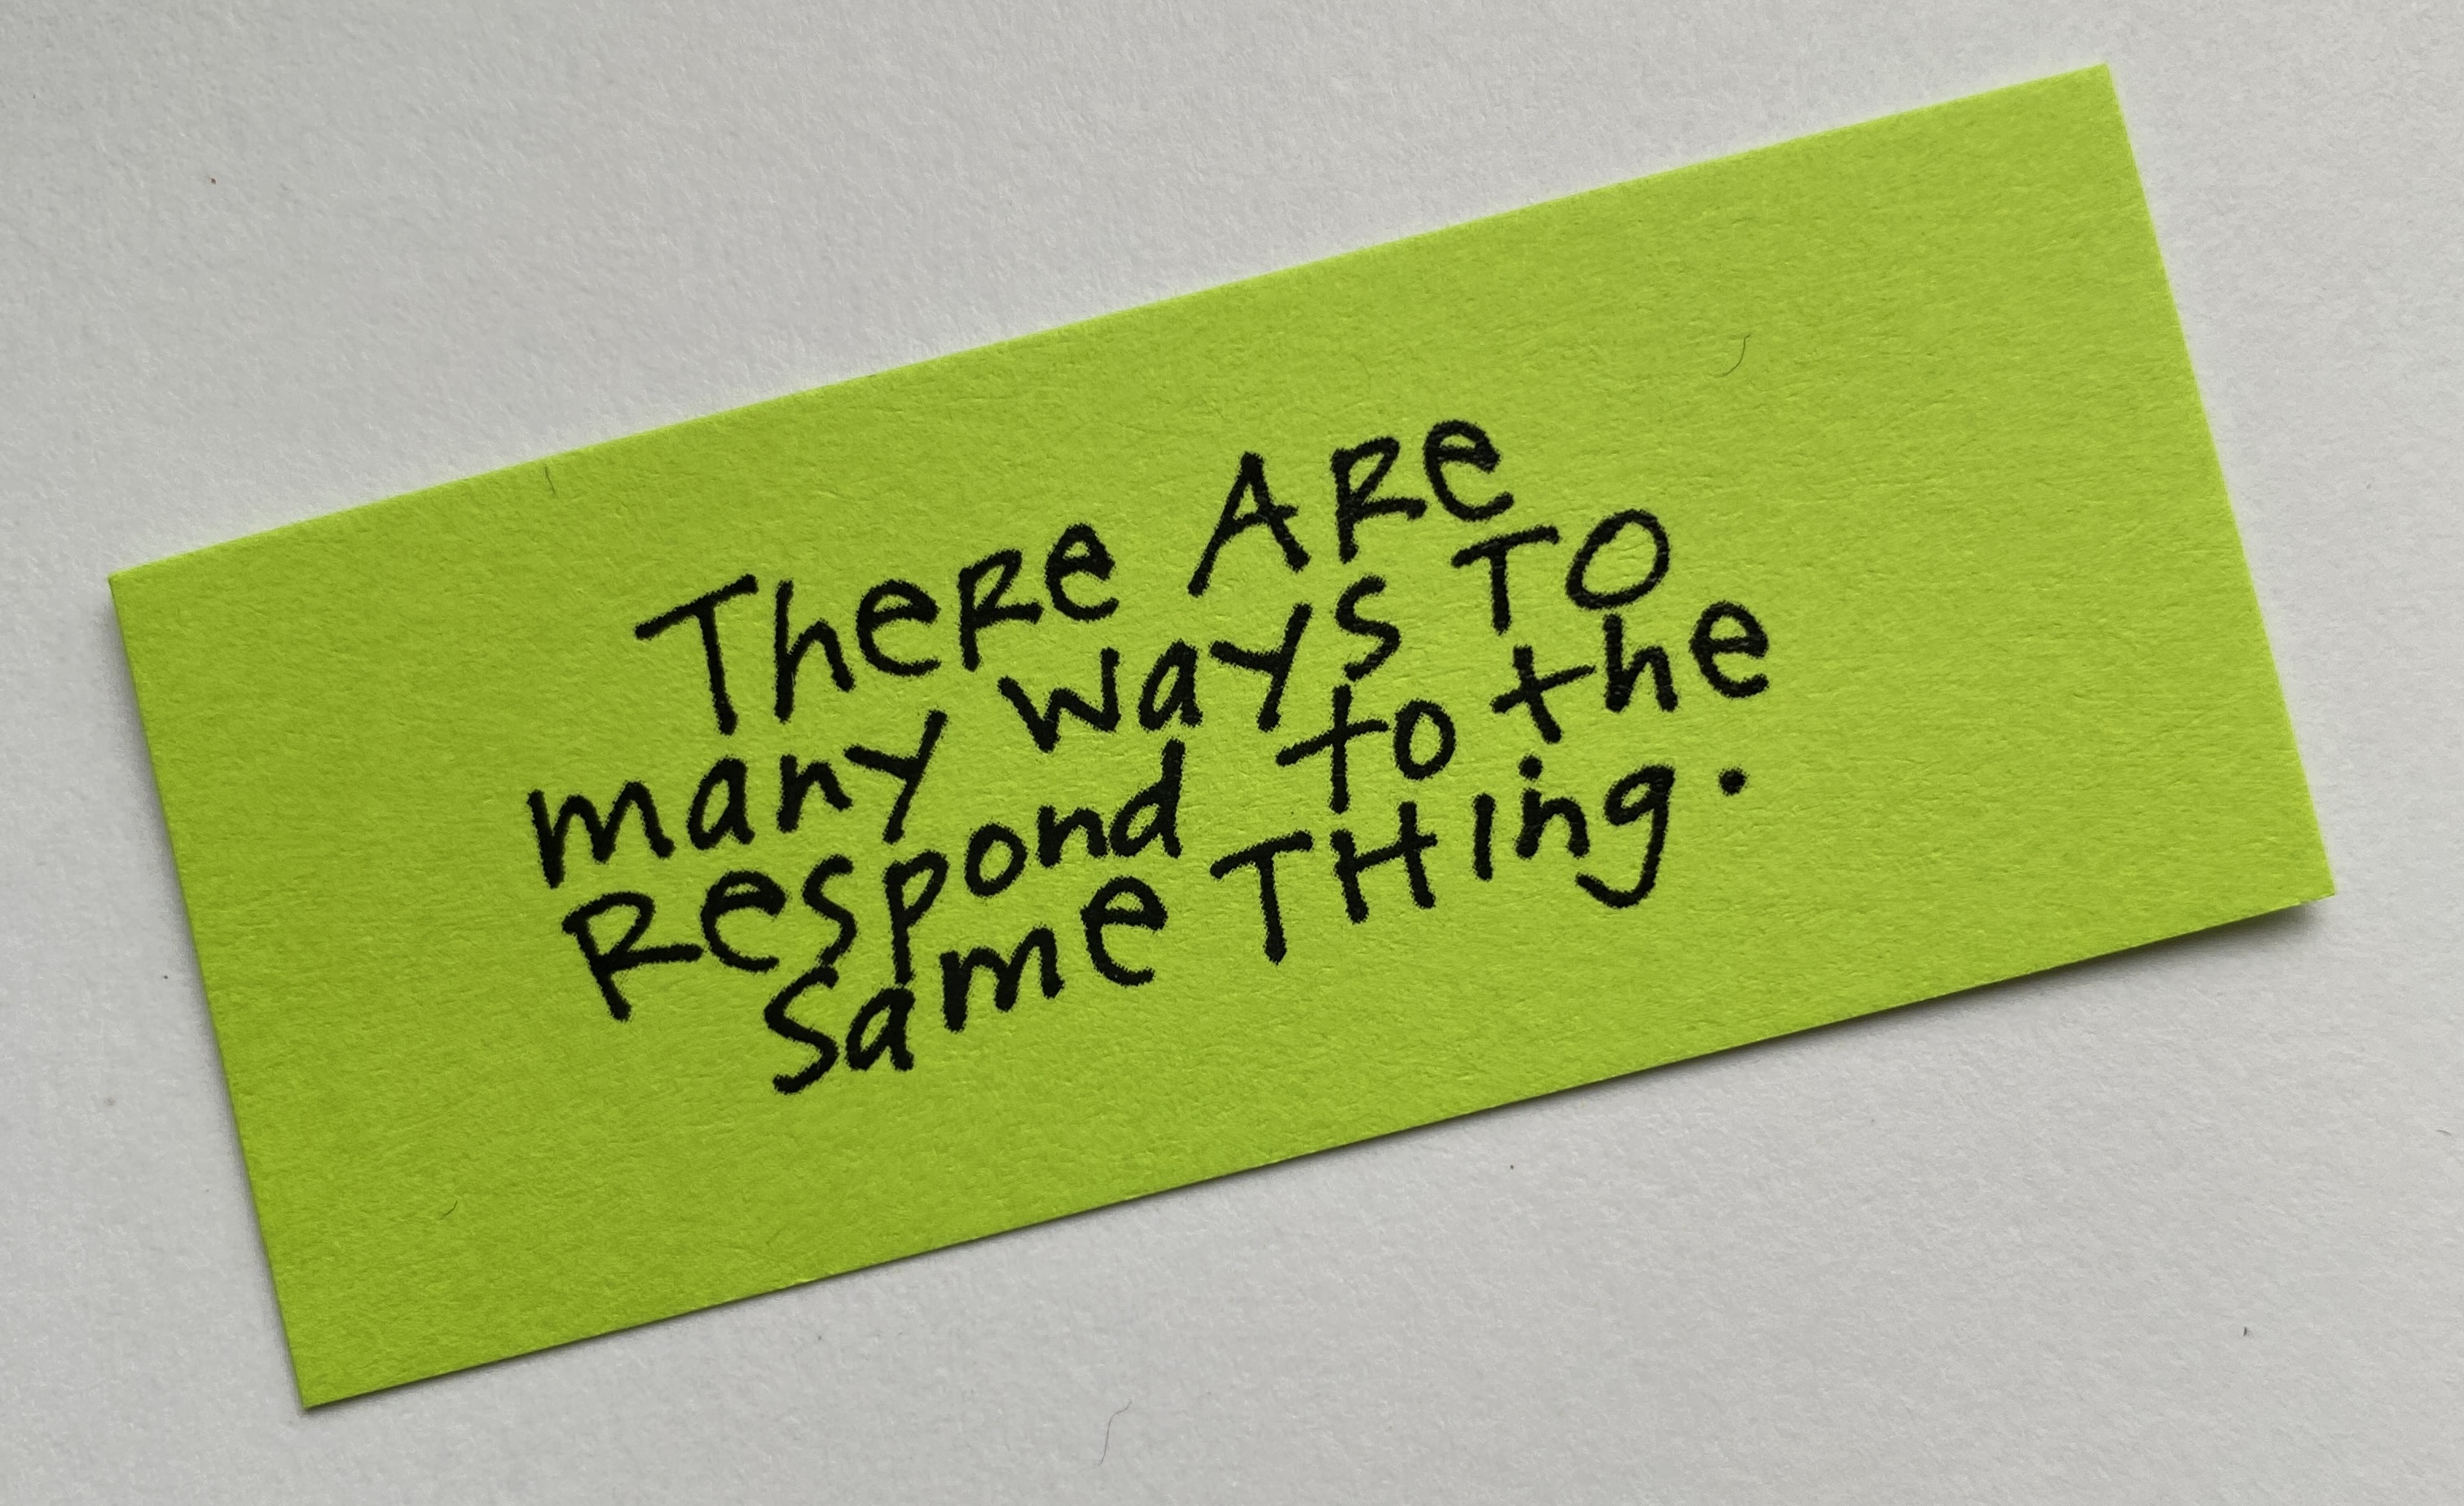 There ARe
many ways TO
Respond to the
same THing.